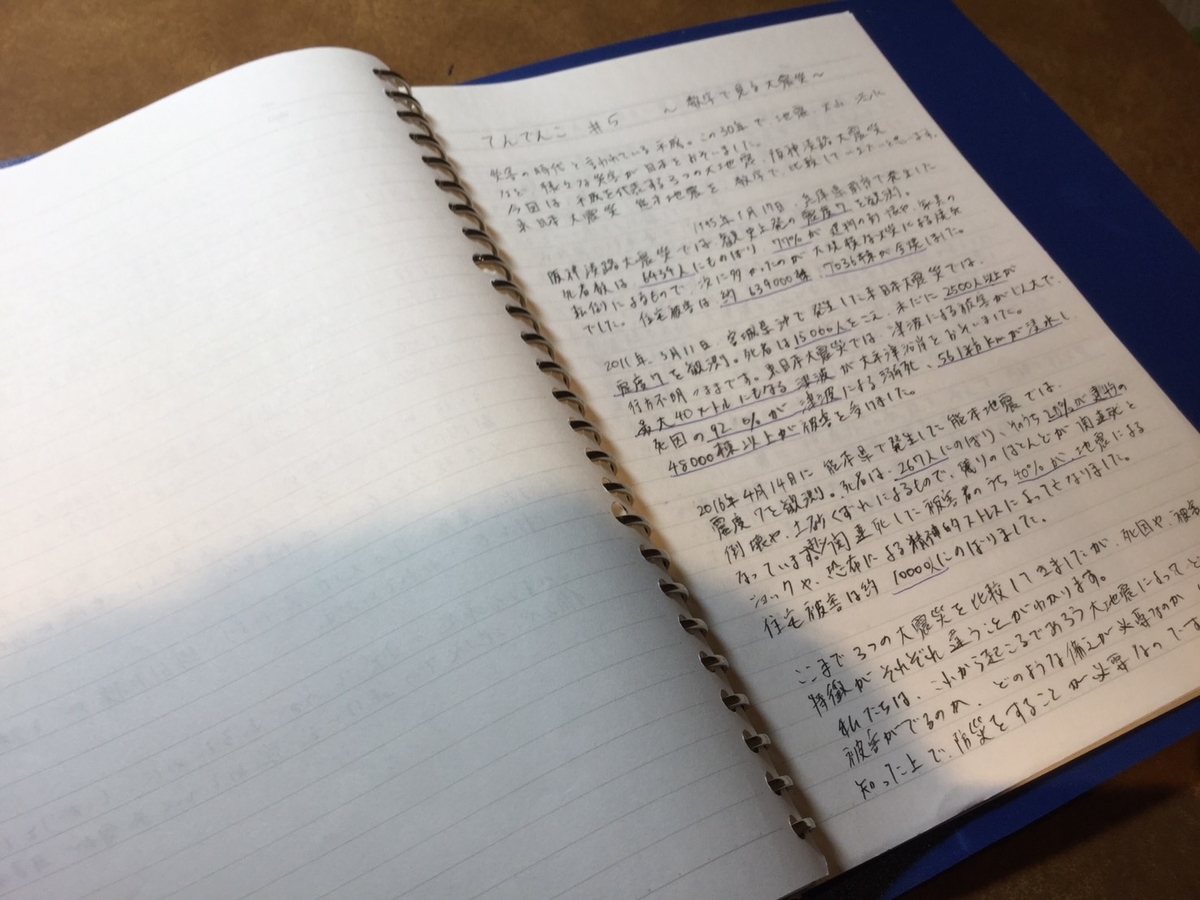 てんでんこ #5 〜数字で見る大震災〜
災害の時代と言われている平成。この30年で、地震、火山、洪水
など、様々な災害が日本をおそいました。
今回は、平成を代表する3つの大地震、阪神淡路大震災
東日本大震災、熊本地震を、数字で比較していきたいと思います。
1995年1月17日、兵庫県南部で発生した
阪神淡路大震災では、観測史上初の震度7を観測。
死者数は、6434人にものぼり、77%が建物の倒壊や、家具の
転倒によるもので、次に多かったのが大規模な火災による焼死
でした。住宅被害は、約639000棟、7036棟が全焼しました。
2011年、3月11日、宮城県沖で発生した東日本大震災では、
震度7を観測。死者は15000人をこえ、未だに2500人以上が
行方不明のままです。東日本大震災では、津波による被害がとん大で、
最大40メートルにもなる津波が太平洋沿岸をおそいました。
死因の92%が津波による溺死、561平方kmが浸水し
48000棟以上が被害を受けました。
2016年4月14日に熊本県で発生した熊本地震では、
震度7を観測。死者は、267人にのぼり、そのうち20%が建物の
倒壊や、土砂くずれによるもので、残りのほとんどが関連死と
なっています。関連死した被害者のうち40%が、地震による
ショックや、恐怖による精神的ストレスによってなくなりました。
住宅被害は約10000人にのぼりました。
ここまで3つの大震災を比較してきましたが、死因や、被害
特徴がそれぞれ違うことがわかります。
私たちは、これから起こるであろう大地震によって、ど
被害がでるのか、どのような備えが必要なのか
知った上で、防災をすることが必要なのです